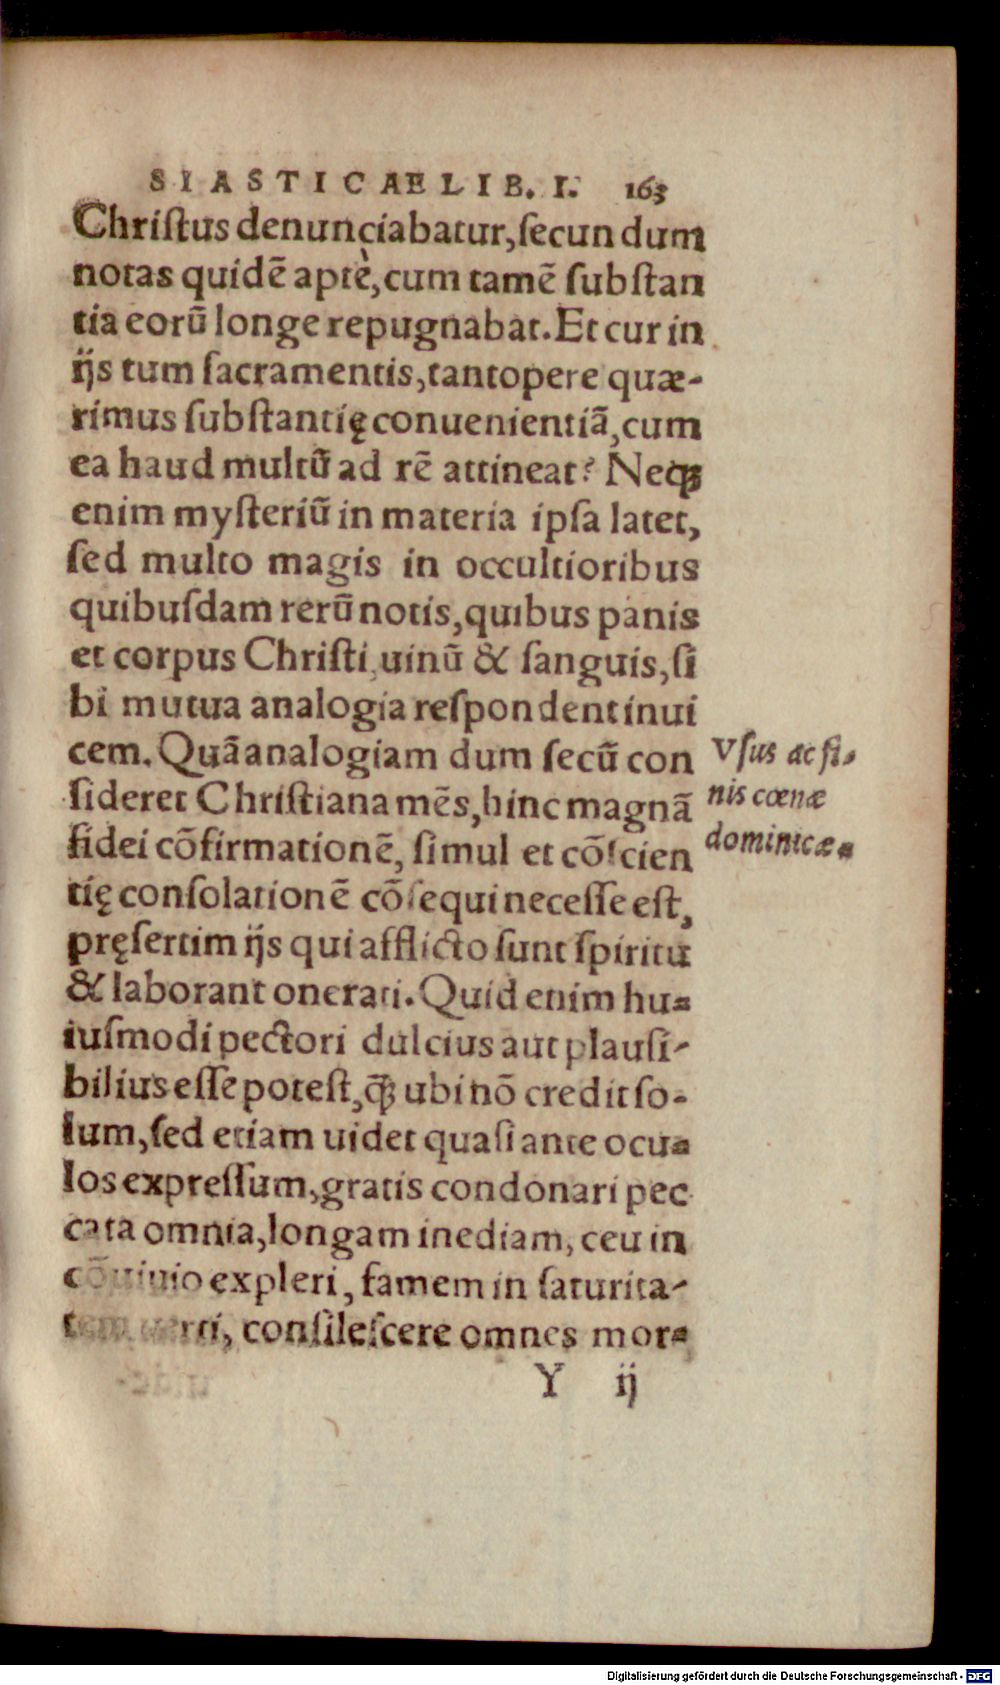 SIASTICAE LIB. I. 163
Chriſtus denunciabatur, ſecun dum
notas quidē aptè, cum tamē ſubſtan
tia eorū longe repugnabat. Et cur in
ijs tum ſacramentis, tantopere quæ-
rimus ſubſtantię conuenientiā, cum
ea haud multū ad rē attineat? Neqꝫ
enim myſteriū in materia ipſa latet,
ſed multo magis in occultioribus
quibuſdam rerū notis, quibus panis
et corpus Chriſti, uinū & ſanguis, ſi
bi mutua analogia reſpondent inui
cem. Quā analogiam dum ſecū con
ſideret Chriſtiana mēs, hinc magnā
fidei cōfirmationē, ſimul et cōſcien
tię conſolationē cōſequi neceſſe eſt,
pręſertim ijs qui afflicto ſunt ſpiritu
& laborant onerati. Quid enim hu-
iuſmodi pectori dulcius aut plauſi-
bilius eſſe poteſt, q̄ꝫ ubi nō credit ſo-
lum, ſed etiam uidet quaſi ante ocu-
los expreſſum, gratis condonari pec
cata omnia, longam inediam, ceu in
cōuiuio expleri, famem in ſaturita-
tem uerti, conſileſcere omnes mor-
Y ij
Vſus ac fi-
nis cœnæ
dominicæ.
Digitalisierung gefördert durch die Deutsche Forschungsgemeinschaft - DFG